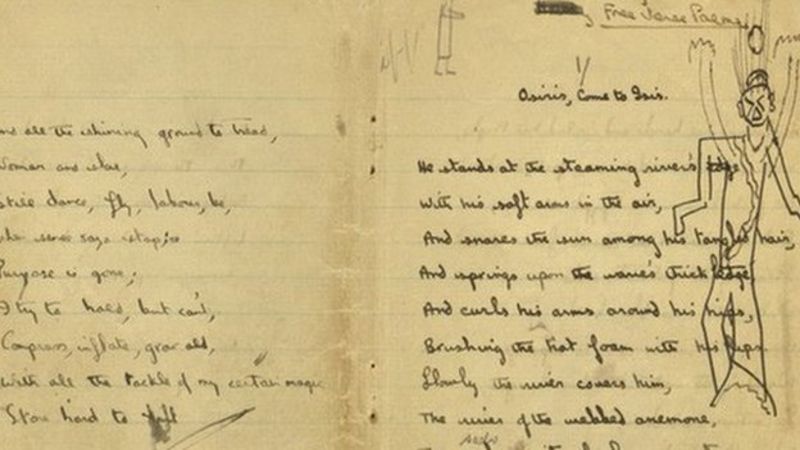 all the shining ground to tread,
Woman and
still dance, fly, labour, be,
sense says stop;
Purpose is gone;
I try to hold, but can't,
Compress, inflate, grow old,
With all the tackle of my certain magic
Stone hard to
Free Verse Poems
Osiris, Come to Isis.
He stands at the steaming river's edge
With his soft arms in the air,
And snares the sun among his tangled hair,
And springs upon the wave's thick ledge
And curls his arms around his hips,
Brushing the hot foam with his lips.
Slowly the river covers him,
The of the webbed anemone,